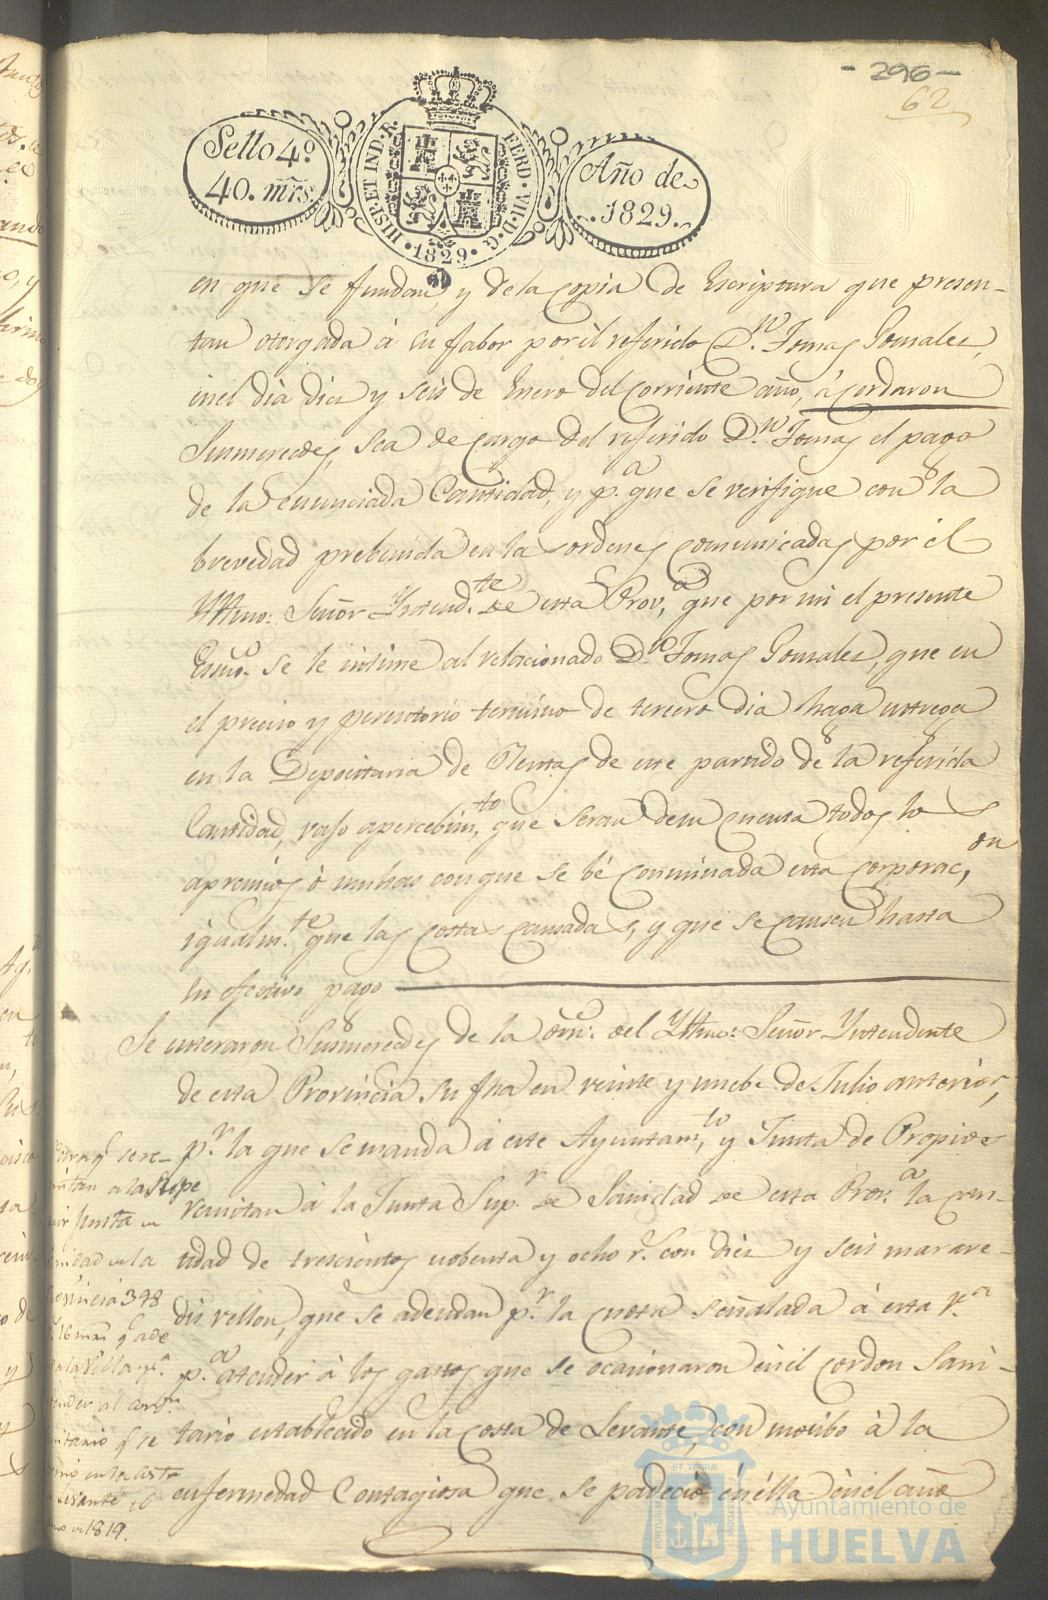 - 296 -
62
Sello 4º
40. mrs.
HISP. ET IND. R.
FERD. VII. D. G.
1829
Año de
1829.
en que se fundan, y de la copia de Escriptura que presen-
tan otorgada á su fabor por el referido D.n Tomas Gonsales,
en el dia dies y seis de Enero del corriente año, acordaron
Susmercedes, sea de cargo del referido D.n Tomas el pago
de la enunciada Cantidad, y p.a que se verifique con la
brevedad prebenida en las ordenes comunicadas por el
Yltmo: Señor Yntend.te de esta Prov.a, que por mi el presente
Essno. se le intime al relacionado D.n Tomas Gonsales, que en
el preciso y perentorio termino de tercero dia haga entrega
en la Depocitaria de Rentas de este partido de la referida
Cantidad, vajo apercebim.to, que seran de su cuenta todos los
apremios ó multas con que se bé conminada esta corporac.on,
igualm.te que las costas causadas, y que se causen hasta
su efectivo pago
Se enteraron Susmercedes de la orn: del Yltmo: Señor Yntendente
de esta Provincia su fha en veinte y nuebe de Julio anterior,
p.r la que se manda á este Ayuntam.to, y Junta de Propios
remitan á la Junta Sup.r de Sanidad de esta Prov.a la can-
tidad de trescientos nobenta y ocho r.s con dies y seis marave-
dis vellon, que se adeudan p.r la cuota señalada á esta v.a
p.a atender á los gastos que se ocacionaron en el cordon Sani-
tario establecido en la costa de Levante, con motibo á la
enfermedad Contagiosa que se padeció en élla en el año
q.e se re-
mitan a la Supe
rior Junta
Sanidad en la
Provincia 398
16 mrs q.e ade
la Villa p.a
atender al cord.n
sanitario q.e se
en la costa
Levante el
año de 1819.
Ayuntamiento de
HUELVA